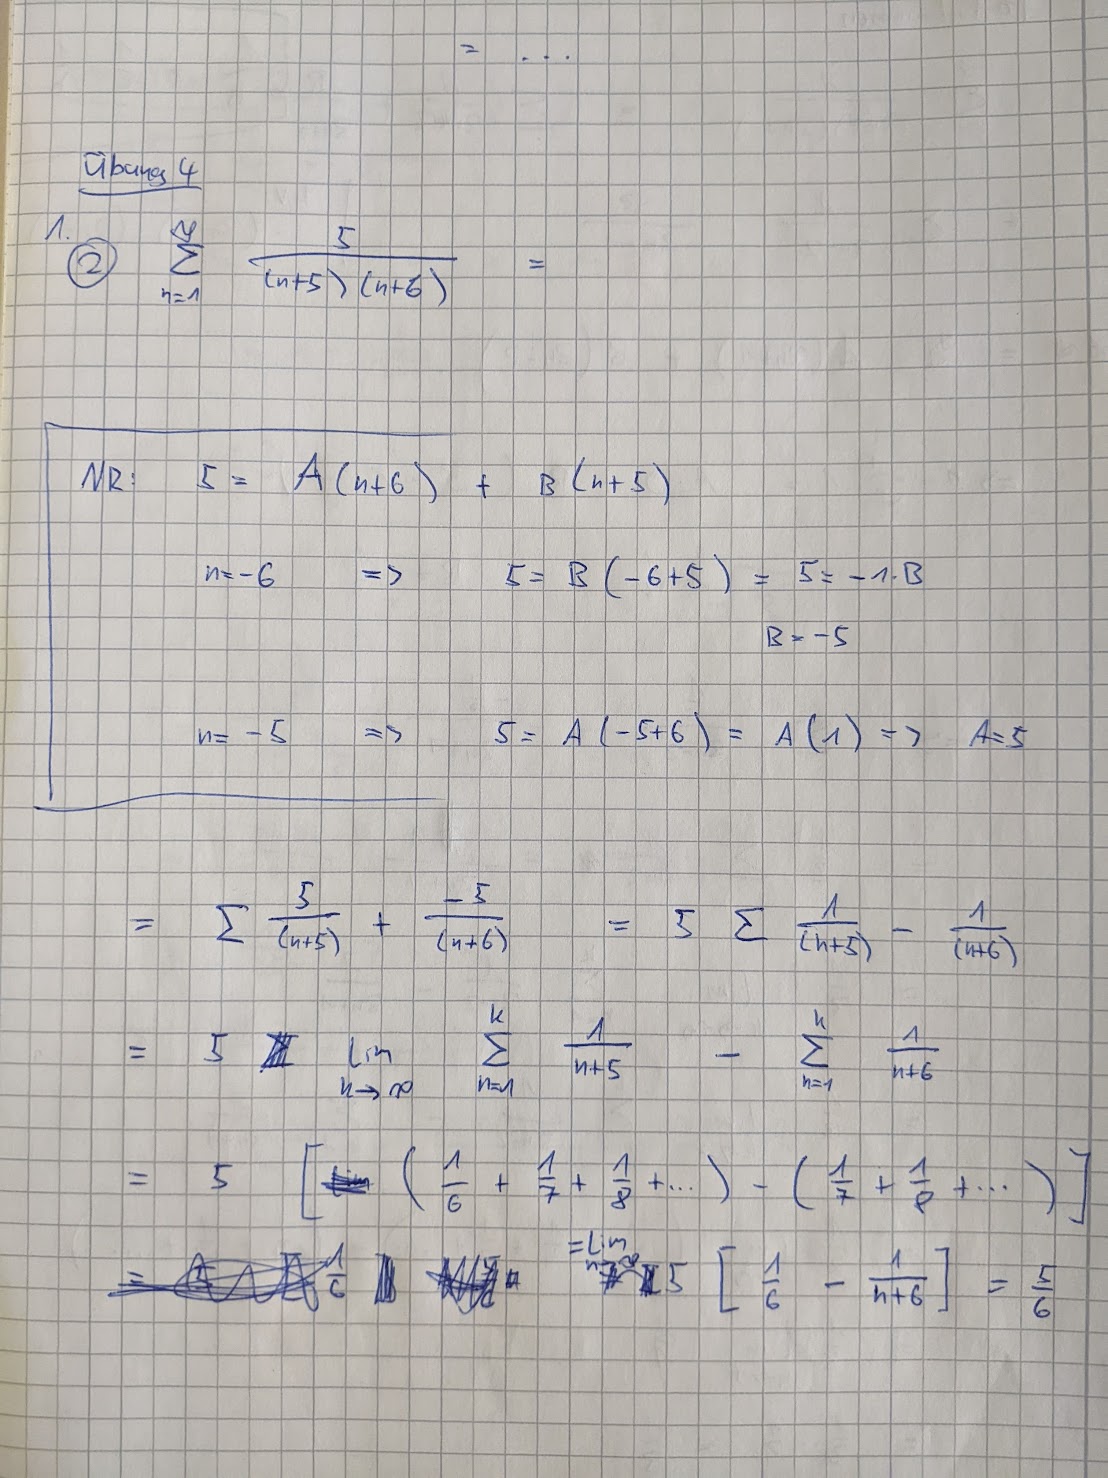 = ...
Übung 4
1.
② ∑_{n=1}^{∞} 5/((n+5)(n+6)) =
NR: 5 = A(n+6) + B(n+5)
n=-6 => 5= B(-6+5) = 5= -1·B
B = -5
n= -5 => 5= A(-5+6) = A(1) => A=5
= ∑ 5/(n+5) + -5/(n+6) = 5 ∑ 1/(n+5) - 1/(n+6)
= 5 lim_{k→∞} ∑_{n=1}^{k} 1/(n+5) - ∑_{n=1}^{k} 1/(n+6)
= 5 [ (1/6 + 1/7 + 1/8 + ...) - (1/7 + 1/8 + ...) ]
1/6 = lim_{n→∞} 5 [ 1/6 - 1/(n+6) ] = 5/6